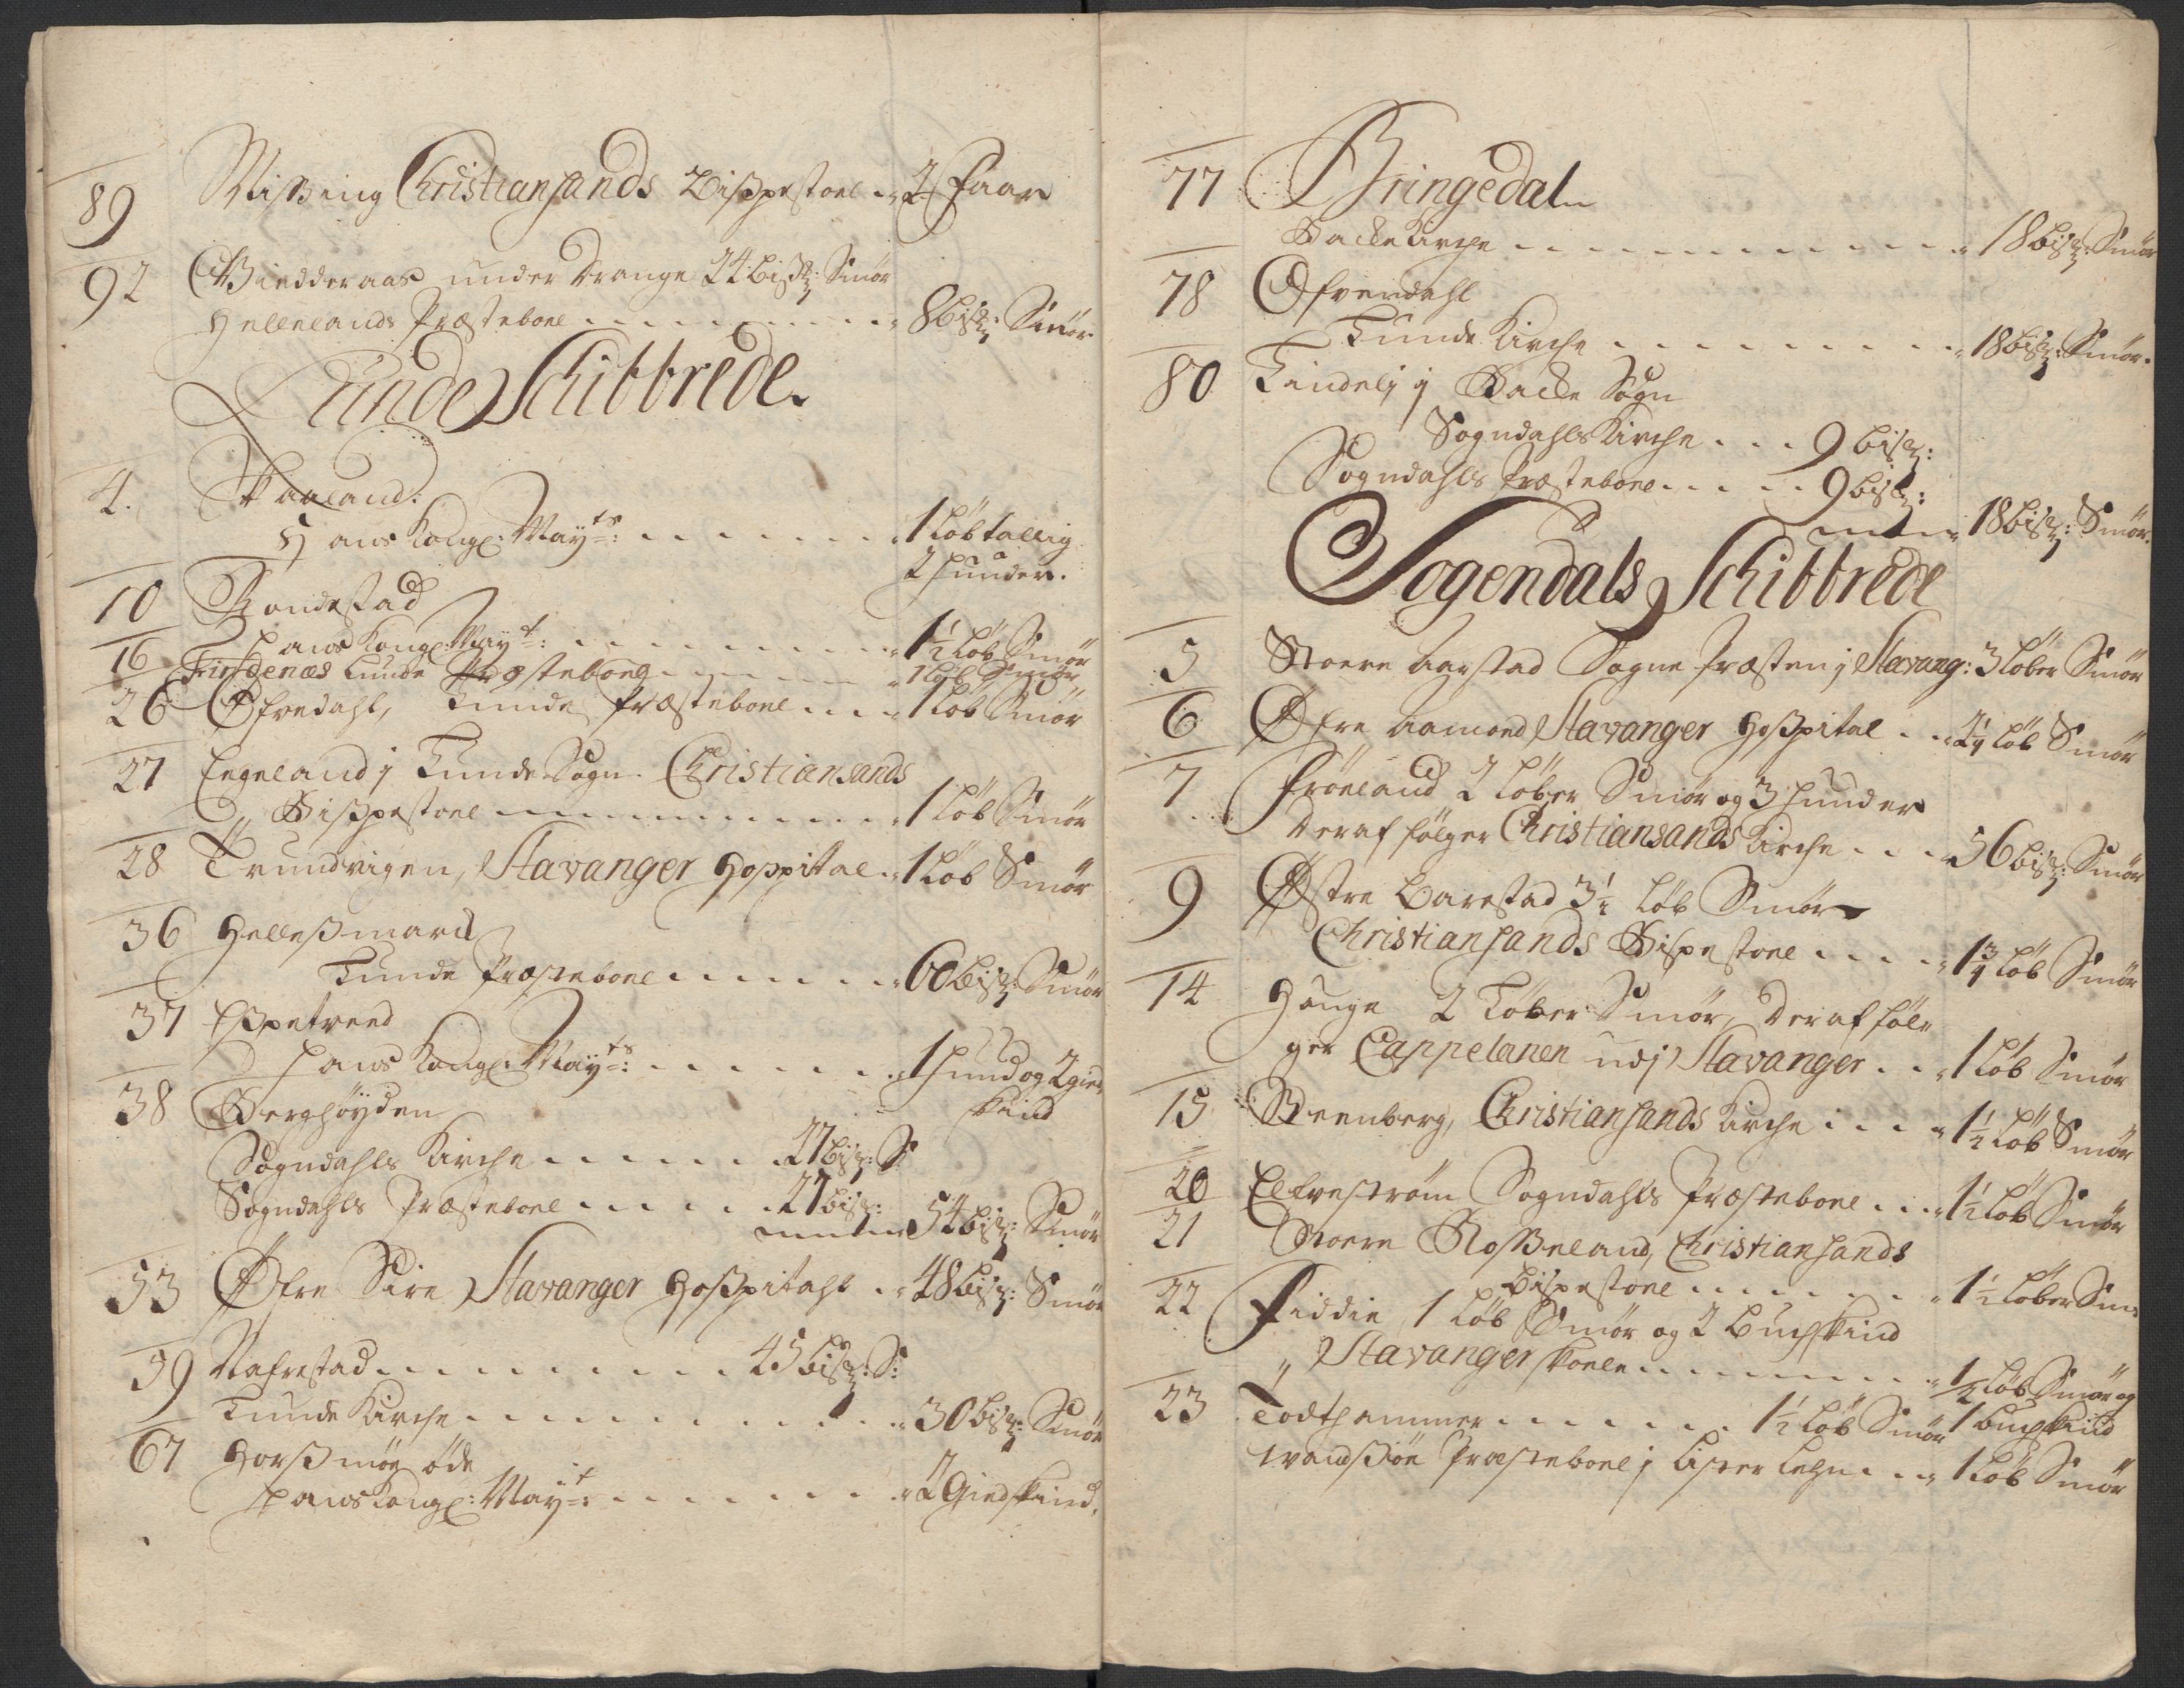 89 Missing Christiansands Bißpestoel 2 Faar
92 Giedderaas under Drange 24 bißr: Smör
Hellelands Præsteboel 8 bißr: Smör.
Lunde Schibbrede.
4. Skaaland:
Hans Kongl: Mayts: 1 Løbtallig
2 Huuder.
10 Rondestad
Hans Kongl: Mayt: 1½ Løb Smör
16 Friisdenæs Lunde Præsteboel 1 Løb Smör
26 Ofvedahl, Lunde Præsteboel 1 Løb Smör
27 Eegeland j Lunde Sogn. Christiansands
Bißpestoel 1 Løb Smör
28 Trundvigen, Stavanger Hospital 1 Løb Smör
36 Helleßmarck
Lunde Præsteboel 60 bißr: Smör
37 Eßpetveed
Hans Kongl: Mayts: 1 Huud og 2 gied
skind
38 Berghöyden
Sogndahls Kirche 27 bisr: S:
Sogndahls Præsteboel 27 bisr:
54 bisr: Smör
53 Øfre Sire Stavanger Hoßpitahl 48 bisr: Smör
59 Nafrestad 45 bisr: S:
Lunde Kirche 30 bisr: Smör
67 Horßmöe øde
Hans Kongl: Mayt: 2 Giedskind.
77 Bringedal
Backe Kirche 18 bisr: Smör
78 Ofvendahl
Lunde Kirche 18 bisr: Smör.
80 Lindelj j Backe Sogn
Sogndahls Kirche 9 bisr:
Sogndahls Præsteboel 9 bisr:
18 bisr: Smör.
Sogendals Schibbrede
5 Stoere Aarstad Sogne Præsten j Stavang: 3 Løber Smör
6 Øfre Aamond Stavanger Hoßpital 2¼ Løb Smör
7 Fröeland 2 Løber Smör og 3 Huuder
Deraf følger Christiansands Kirche 56 bisr: Smör
9 Østre Barstad 3½ Løb Smör
Christiansands Bispestoel 1¾ Løb Smör
14 Houge 2 Løber Smör, Deraf föl-
ger Cappelanen udj Stavanger 1 Løb Smör
15 Steenberg, Christiansands Kirche 1½ Løb Smör
20 Elfvestrøm Sogndahls Præsteboel 1½ Løb Smör
21 Stoere Roßeland, Christiansands
bispestoel 1½ Løber Smör
22 Fiddie 1 Løb Smör og 2 Buchskind
Stavanger skoele ½ Løb Smör og
1 buchskind
23 Todthammer 1½ Løb Smör
Qvandßiöe Præsteboel j Lister Lehn 1 Løb Smör